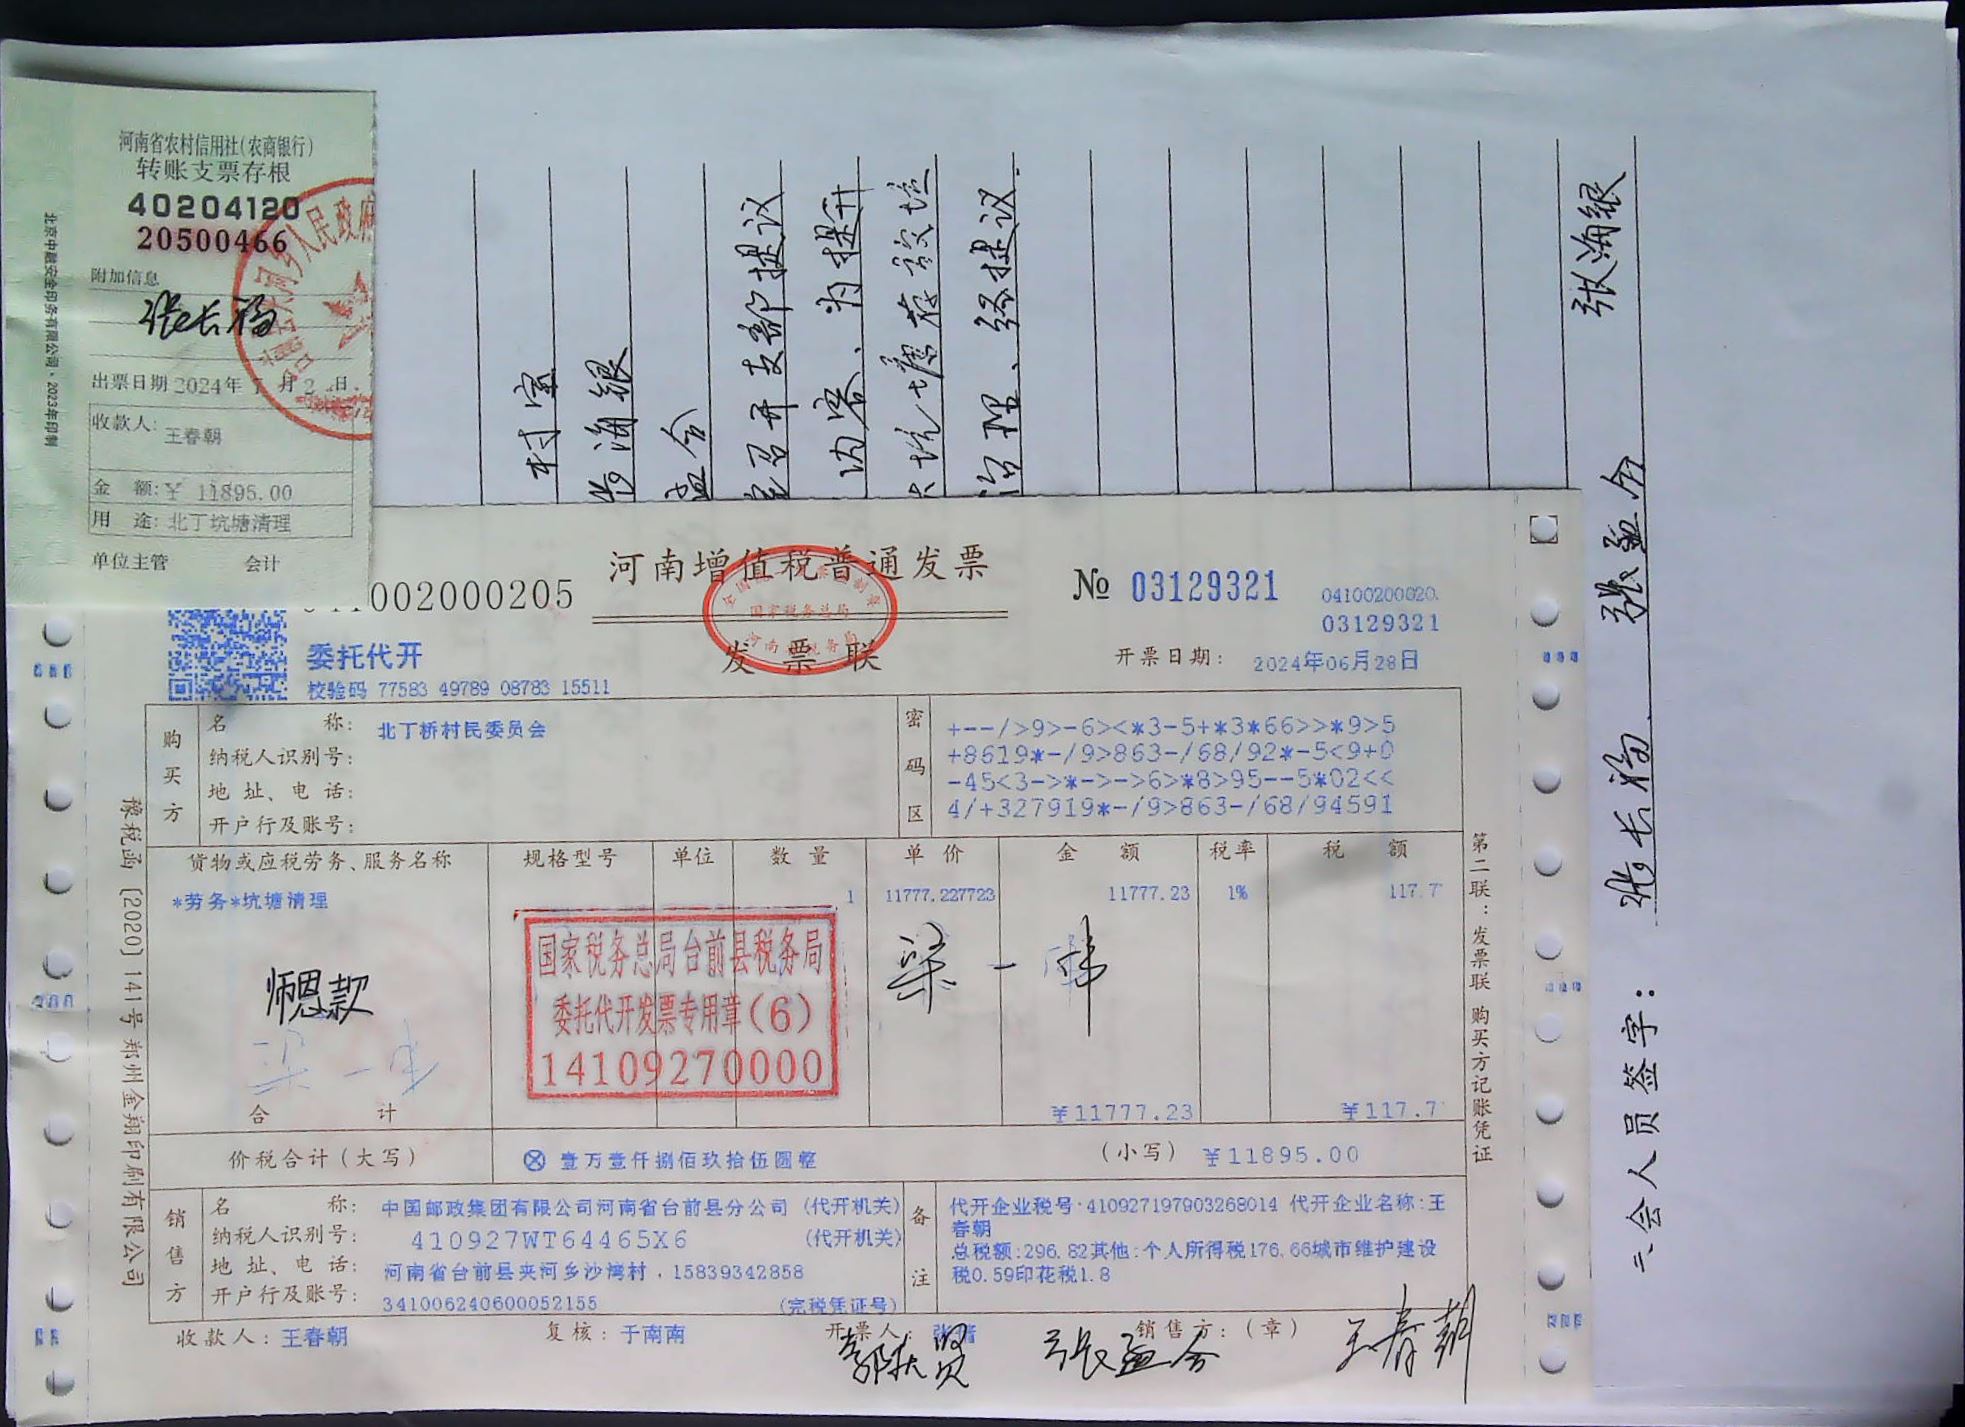 河南省农村信用社(农商银行)
转账支票存根
40204120
20500466
附加信息
张长福
出票日期2024年 月2 日
收款人: 王春朝
金 额:¥ 11895.00
用 途: 北丁坑塘清理
单位主管 会计
北京中融安全印务有限公司·2023年印制
村室
张海银
孟令
召开支部提议
内容、为提升
大坑塘存放垃
治理、经提议
三、会人员签字: 张长福 张孟令 张海银
002000205
河南增值税普通发票
发票联
国家税务总局
№ 03129321
04100200020
03129321
委托代开
校验码 77583 49789 08783 15511
开票日期: 2024年06月28日
购买方
名 称: 北丁桥村民委员会
纳税人识别号:
地 址、电 话:
开户行及账号:
密码区
+--/>9>-6><*3-5+*3*66>>*9>5
+8619*-/9>863-/68/92*-5<9+0
-45<3->*->->6>*8>95--5*02<<
4/+327919*-/9>863-/68/94591
货物或应税劳务、服务名称 规格型号 单位 数 量 单 价 金 额 税率 税 额
*劳务*坑塘清理 1 11777.227723 11777.23 1% 117.7
国家税务总局台前县税务局
委托代开发票专用章(6)
14109270000
师恩款
梁一
合 计 ¥11777.23 ¥117.7
价税合计(大写) ⊗ 壹万壹仟捌佰玖拾伍圆整 (小写) ¥11895.00
销售方
名 称: 中国邮政集团有限公司河南省台前县分公司 (代开机关)
纳税人识别号: 410927WT64465X6 (代开机关)
地 址、电 话: 河南省台前县夹河乡沙湾村,15839342858
开户行及账号: 341006240600052155 (完税凭证号)
备注
代开企业税号:410927197903268014 代开企业名称:王
春朝
总税额:296.82其他:个人所得税176.66城市维护建设
税0.59印花税1.8
收款人: 王春朝 复核: 于南南 开票人: 销售方:(章)
张孟令 王春朝
豫税函〔2020〕141号郑州金翔印刷有限公司
第二联:发票联 购买方记账凭证